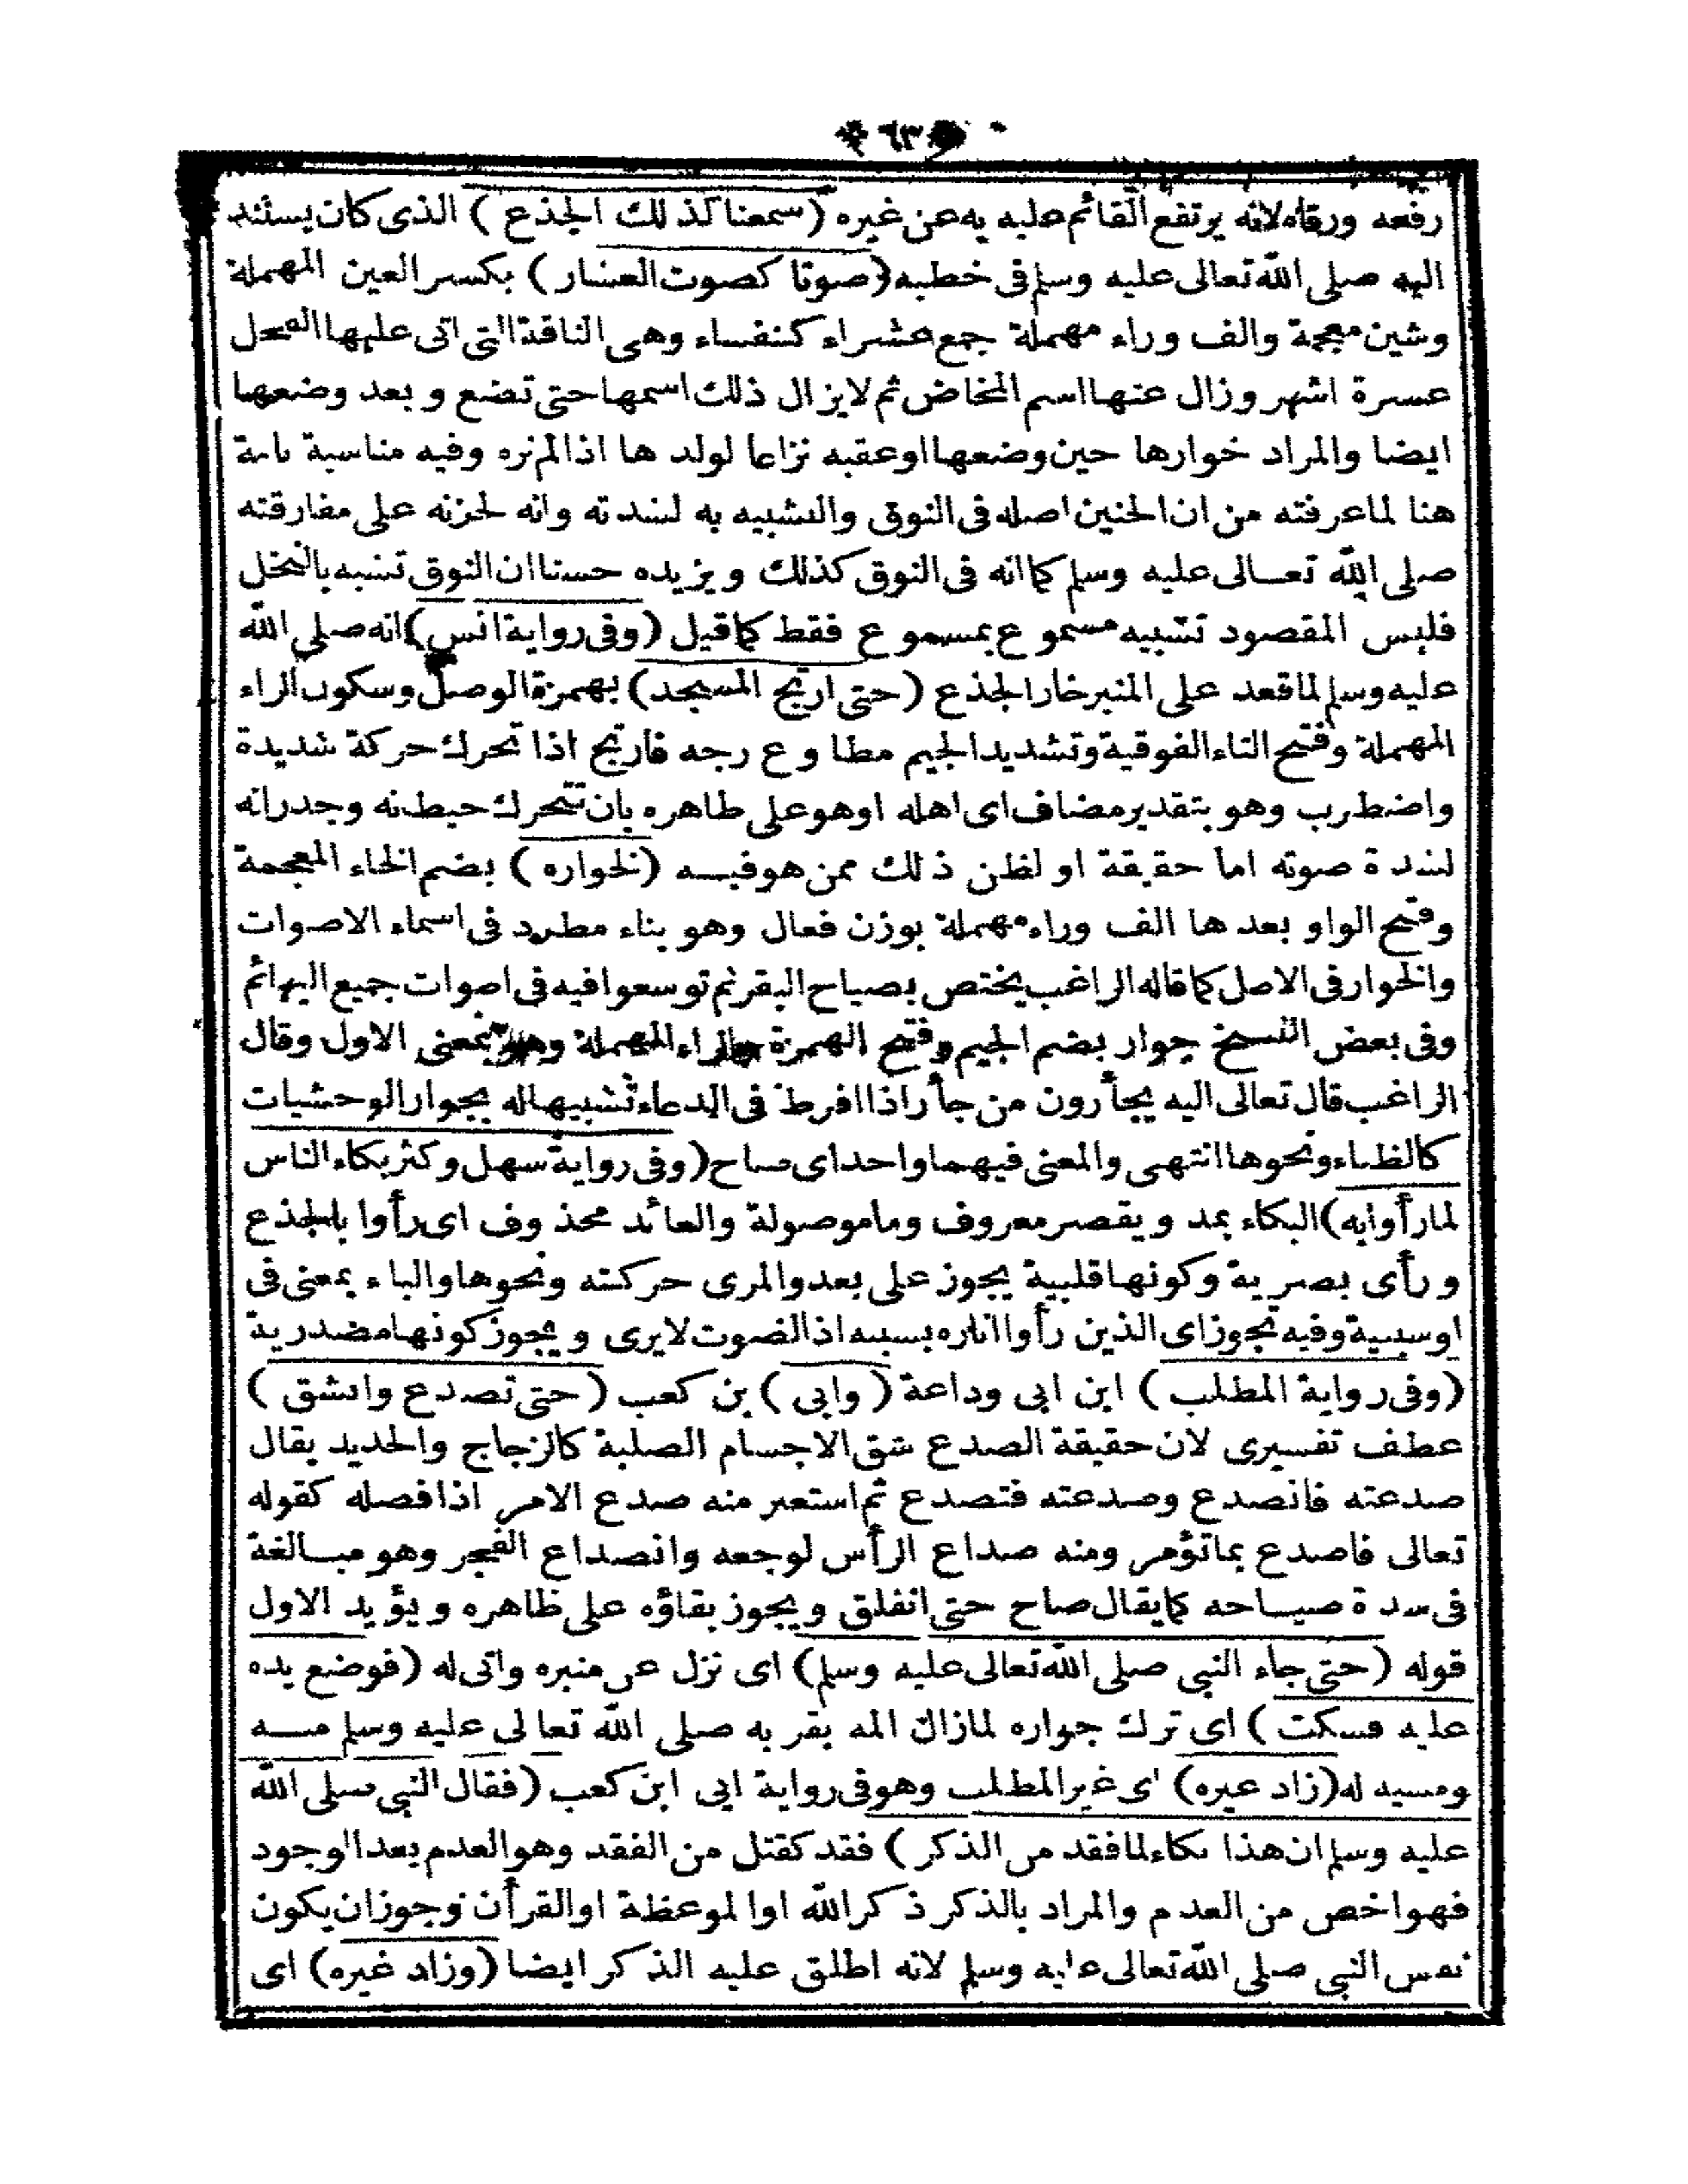 ٦٣
رفعه ورقاه لانه يرتفع القائم عليه به عن غيره (سمعنا كذلك الجذع) الذى كان يستند
اليه صلى الله تعالى عليه وسلم فى خطبه (صوتا كصوت العشار) بكسر العين المهملة
وشين معجمة والف وراء مهملة جمع عشراء كنفساء وهى الناقة التى اتى عليها الفحل
عسرة اشهر وزال عنها اسم المخاض ثم لايزال ذلك اسمها حتى تضع و بعد وضعها
ايضا والمراد خوارها حين وضعها اوعقبه نزاعا لولد ها اذالم نره وفيه مناسبة تامة
هنا لماعرفته من ان الحنين اصله فى النوق والتشبيه به لشدته وانه لحزنه على مفارقته
صلى الله تعالى عليه وسلم كما انه فى النوق كذلك و يزيده حسنا ان النوق تشبه بالنخل
فليس المقصود تشبيه مسموع بمسموع فقط كما قيل (وفى رواية انس) انه صلى الله
عليه وسلم لما قعد على المنبر خار الجذع (حتى ارتج المسجد) بهمزة الوصل وسكون الراء
المهملة وفتح التاء الفوقية وتشديد الجيم مطاوع رجه فارتج اذا تحرك حركة شديدة
واضطرب وهو بتقدير مضاف اى اهله اوهو على ظاهره بان تتحرك حيطنه وجدرانه
لشدة صوته اما حقيقة او لظن ذلك ممن هو فيه (لخواره) بضم الخاء المعجمة
وفتح الواو بعد ها الف وراء مهملة بوزن فعال وهو بناء مطرد فى اسماء الاصوات
والخوار فى الاصل كما قاله الراغب يختص بصياح البقر ثم توسعوا فيه فى اصوات جميع البهائم
وفى بعض النسخ جوار بضم الجيم وفتح الهمزة والراء المهملة وهو بمعنى الاول وقال
الراغب قال تعالى اليه يجأرون من جأر اذا افرط فى الدعاء تشبيها له بجوار الوحشيات
كالظباء ونحوها انتهى والمعنى فيهما واحد اى صاح (وفى رواية سهل وكثر بكاء الناس
لما رأوابه) البكاء بمد و يقصر معروف وما موصولة والعائد محذوف اى رأوا بالجذع
و رأى بصرية وكونها قلبية يجوز على بعد والمرى حركته ونحوها والباء بمعنى فى
اوسببية وفيه تجوز اى الذين رأوا اثاره بسببه اذ الصوت لايرى و يجوز كونها مصدرية
(وفى رواية المطلب) ابن ابى وداعة (وابى) بن كعب (حتى تصدع وانشق)
عطف تفسيرى لان حقيقة الصدع شق الاجسام الصلبة كالزجاج والحديد يقال
صدعته فانصدع وصدعته فتصدع ثم استعير منه صدع الامر اذا فصله كقوله
تعالى فاصدع بما تؤمر ومنه صداع الرأس لوجعه وانصداع الفجر وهو مبالغة
فى شدة صياحه كما يقال صاح حتى انفلق و يجوز بقاؤه على ظاهره و يؤيد الاول
قوله (حتى جاء النبى صلى الله تعالى عليه وسلم) اى نزل عن منبره واتى له (فوضع يده
عليه فسكت) اى ترك جواره لما زال المه بقر به صلى الله تعالى عليه وسلم منه
ومسيه له (زاد غيره) اى غير المطلب وهو فى رواية ابى ابن كعب (فقال النبى صلى الله
عليه وسلم ان هذا بكاء لما فقد من الذكر) فقد كقتل من الفقد وهو العدم بعد الوجود
فهو اخص من العدم والمراد بالذكر ذكر الله او الموعظة او القرأن وجوز ان يكون
نفس النبى صلى الله تعالى عليه وسلم لانه اطلق عليه الذكر ايضا (وزاد غيره) اى